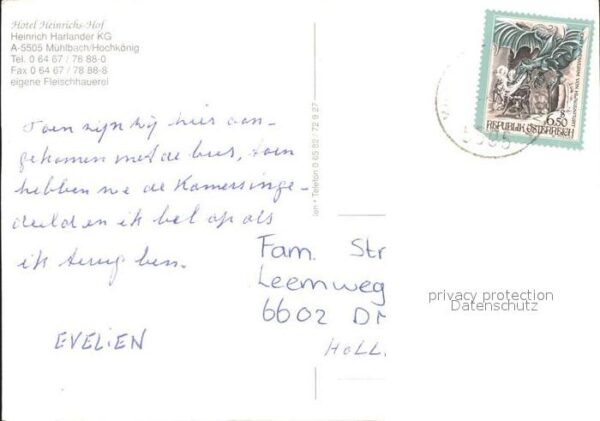 Hotel Heinrichs-Hof
Heinrich Harlander KG
A-5505 Mühlbach/Hochkönig
Tel. 0 64 67 / 78 88-0
Fax 0 64 67 / 78 88-8
eigene Fleischhauerei
Toen zijn wij hier aan-
gekomen met de bus, toen
hebben we de Kamers inge-
deeld en ik bel op als
ik terug ben.
EVELIEN
Telefon 0 65 82 / 72 9 27
6.50
S
REPUBLIK ÖSTERREICH
Fam. Str
Leemweg
6602 D
HOLL
privacy protection
Datenschutz